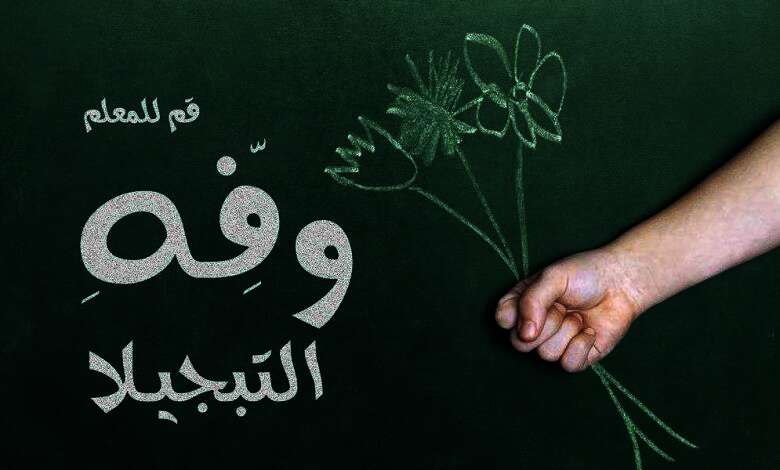 قم للمعلم
وفِّهِ
التبجيلا